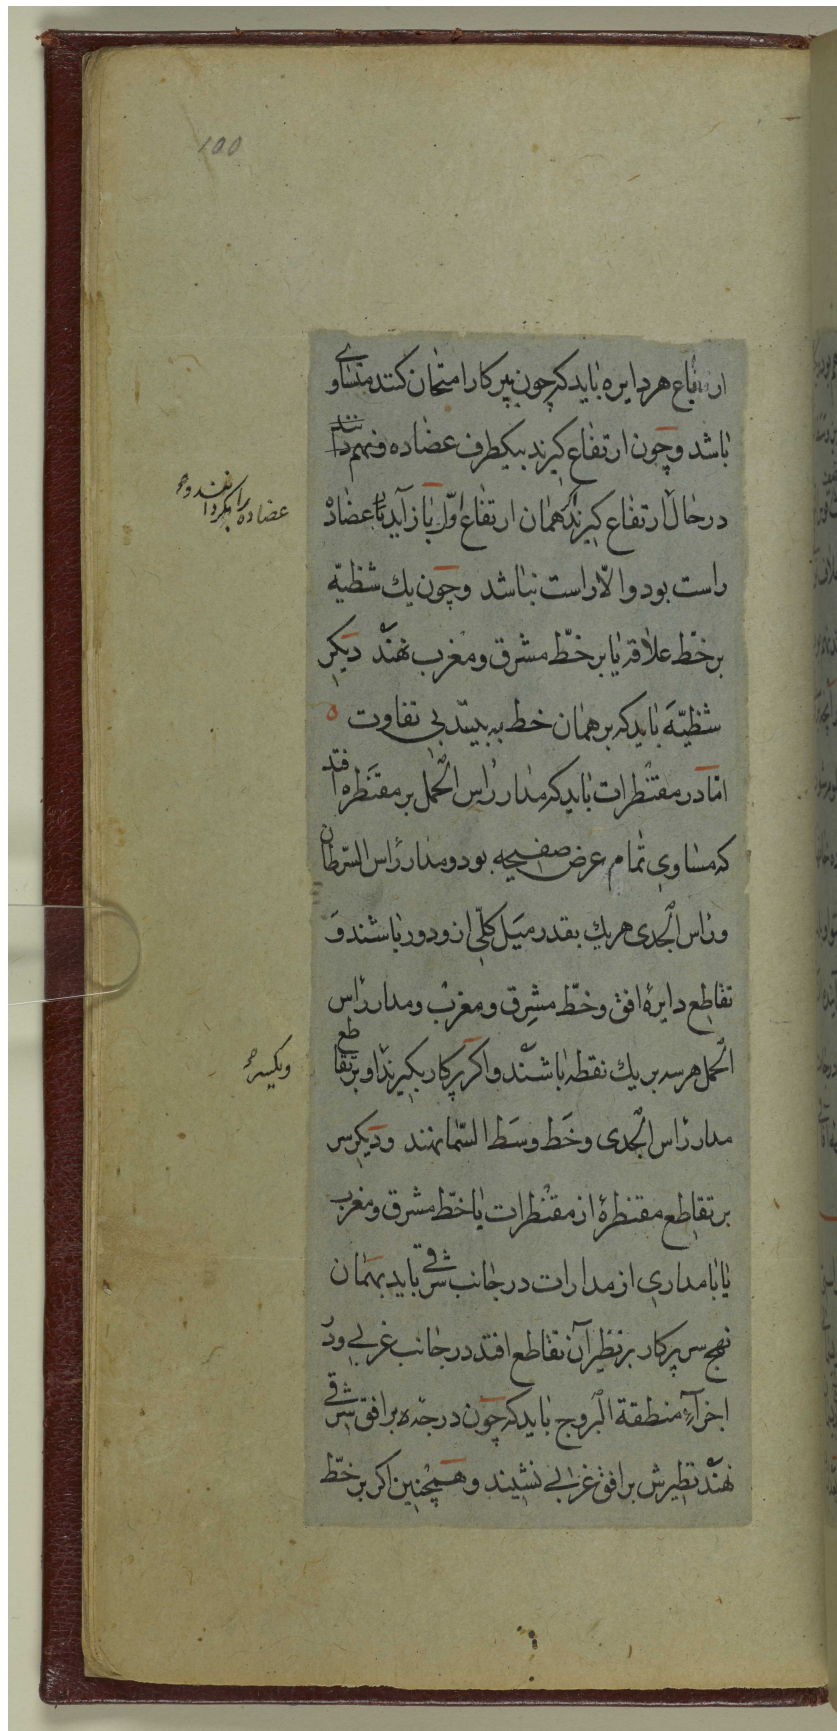 ۱۵۵
ارتفاع هر دایره باید که چون بپرکار امتحان کنند متساوی
باشد و چون ارتفاع گیرند بیکطرف عضاده و فهم دانند
درحال ارتفاع گیرند که همان ارتفاع اوّل باز آید تا عضاده
عضاده را بگردانند و
راست بود و الّا راست نباشد و چون یك شظیّه
بر خطّ علاقه یا بر خطّ مشرق و مغرب نهند دیگر
شظیّه باید که بر همان خط به بینند بی تفاوت ه
امّا در مقنطرات باید که مدار رأس الحمل بر مقنطره افتد
که مساوی تمام عرض صفیحه بود و مدار رأس السّرطان
و رأس الجدی هریك بقدر میل کلّی ازو دور باشند وَ
تقاطع دایرهٔ افق و خطّ مشرق و مغرب و مدار رأس
الحمل هر سه بر یك نقطه باشند و اکر پرکار بگیرند و بر تقاطع
و یکسر
مدار رأس الجدی و خط وسط السّما نهند و دیگر سر
بر تقاطع مقنطرهٔ از مقنطرات یا خطّ مشرق و مغرب
یا با مداری از مدارات در جانب شرقی باید بهمان
نهج سر پرکار بر نظیر آن تقاطع افتد در جانب غربی و در
اجزآء منطقة البروج باید که چون درجه بر افق شرقی
نهند نظیرش بر افق غربی نشیند و همچنین اکر بر خطّ